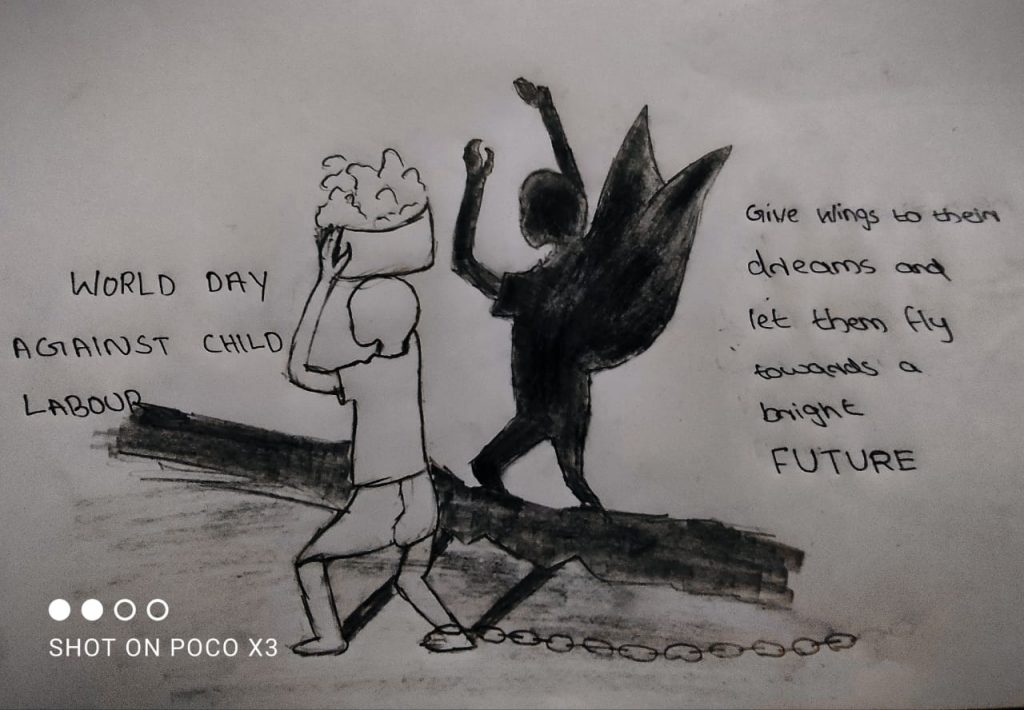 WORLD DAY
AGAINST CHILD
LABOUR
Give wings to their
dreams and
let them fly
towards a
bright
FUTURE
SHOT ON POCO X3